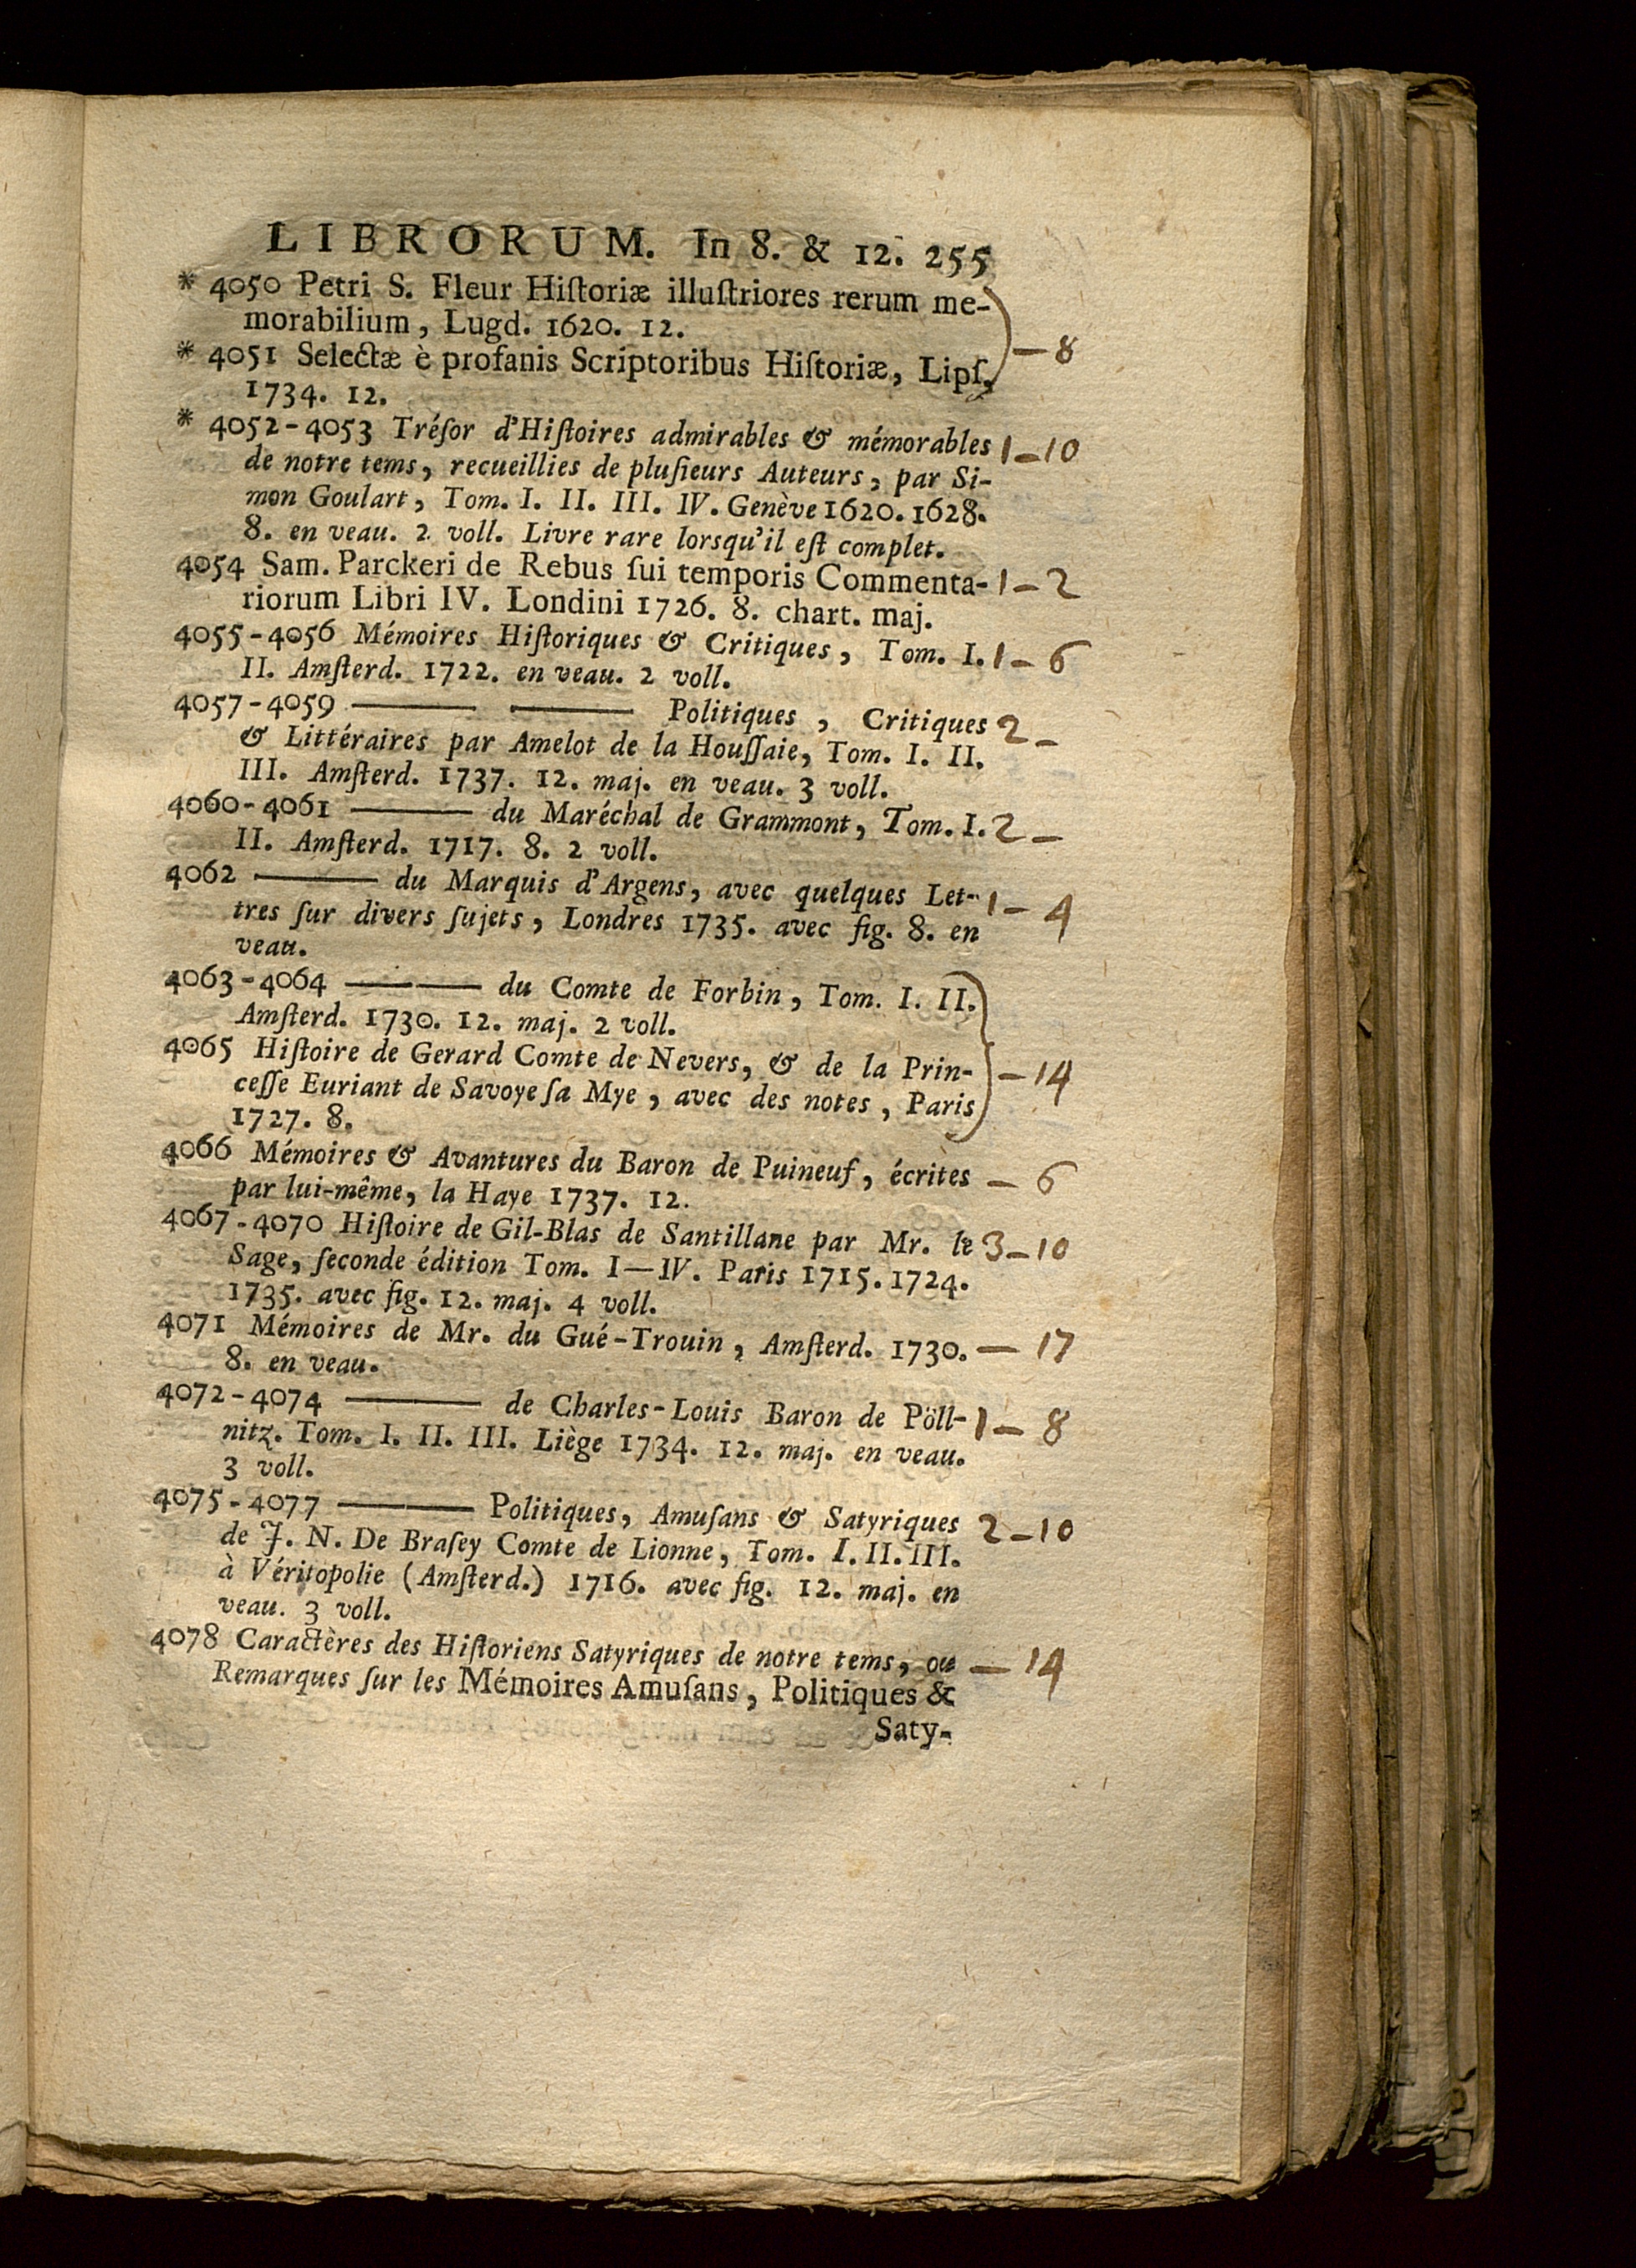 LIBRORUM. In 8. & 12. 255
* 4050 Petri S. Fleur Hiſtoriæ illuſtriores rerum me-
morabilium, Lugd. 1620. 12.
* 4051 Selectæ è profanis Scriptoribus Hiſtoriæ, Lipſ, — 8
1734. 12.
* 4052-4053 Tréſor d'Hiſtoires admirables & mémorables 1—10
de notre tems, recueillies de pluſieurs Auteurs, par Si-
mon Goulart, Tom. I. II. III. IV. Genève 1620. 1628.
8. en veau. 2 voll. Livre rare lorsqu'il eſt complet.
4054 Sam. Parckeri de Rebus ſui temporis Commenta- 1—2
riorum Libri IV. Londini 1726. 8. chart. maj.
4055-4056 Mémoires Hiſtoriques & Critiques, Tom. I. 1—6
II. Amſterd. 1722. en veau. 2 voll.
4057-4059 ——— ——— Politiques, Critiques 2—
& Littéraires par Amelot de la Houſſaie, Tom. I. II.
III. Amſterd. 1737. 12. maj. en veau. 3 voll.
4060-4061 ——— du Maréchal de Grammont, Tom. I. 2—
II. Amſterd. 1717. 8. 2 voll.
4062 ——— du Marquis d'Argens, avec quelques Let- 1—4
tres ſur divers ſujets, Londres 1735. avec fig. 8. en
veau.
4063-4064 ——— du Comte de Forbin, Tom. I. II.
Amſterd. 1730. 12. maj. 2 voll.
4065 Hiſtoire de Gerard Comte de Nevers, & de la Prin- —14
ceſſe Euriant de Savoye ſa Mye, avec des notes, Paris
1727. 8.
4066 Mémoires & Avantures du Baron de Puineuf, écrites — 6
par lui-même, la Haye 1737. 12.
4067-4070 Hiſtoire de Gil-Blas de Santillane par Mr. le 3—10
Sage, ſeconde édition Tom. I—IV. Paris 1715. 1724.
1735. avec fig. 12. maj. 4 voll.
4071 Mémoires de Mr. du Gué-Trouin, Amſterd. 1730. — 17
8. en veau.
4072-4074 ——— de Charles-Louis Baron de Pöll- 1—8
nitz. Tom. I. II. III. Liège 1734. 12. maj. en veau.
3 voll.
4075-4077 ——— Politiques, Amuſans & Satyriques 2—10
de J. N. De Braſey Comte de Lionne, Tom. I. II. III.
à Véritopolie (Amſterd.) 1716. avec fig. 12. maj. en
veau. 3 voll.
4078 Caractères des Hiſtoriens Satyriques de notre tems, ou — 14
Remarques ſur les Mémoires Amuſans, Politiques &
Saty-